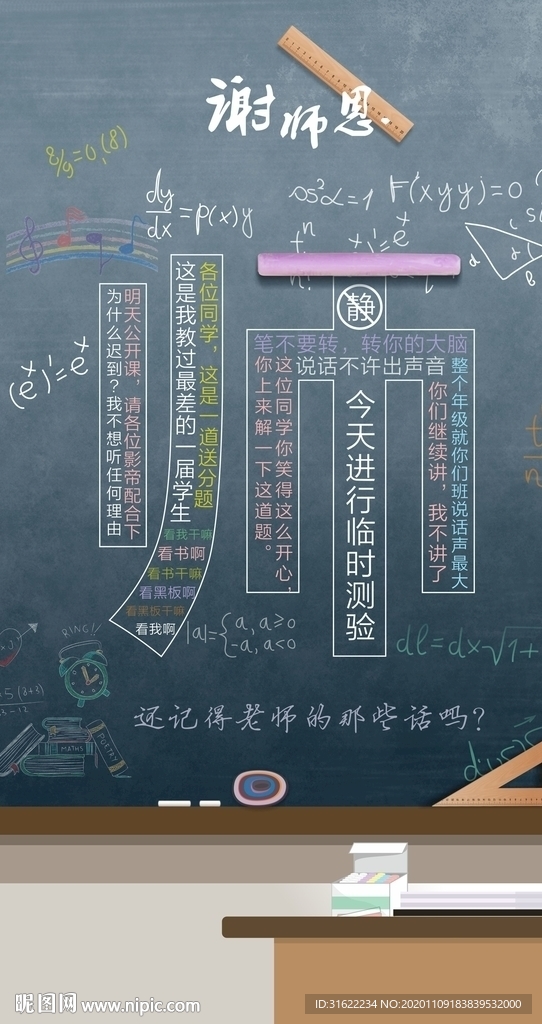 谢师恩
8/9=0,(8)
dy/dx=p(x)y
F(xyy)=0
(e^x)'=e^x
明天公开课，请各位影帝配合下
为什么迟到？我不想听任何理由
各位同学，这是一道送分题
这是我教过最差的一届学生
看我干嘛
看书啊
看书干嘛
看黑板啊
看黑板干嘛
看我啊
静
笔不要转，转你的大脑
说话不许出声音
这位同学你笑得这么开心，
你上来解一下这道题。
今天进行临时测验
整个年级就你们班说话声最大
你们继续讲，我不讲了
|a|={a, a≥0
-a, a<0
RING!!
MATHS
POETRY
还记得老师的那些话吗？
昵图网 www.nipic.com
ID:31622234 NO:20201109183839532000